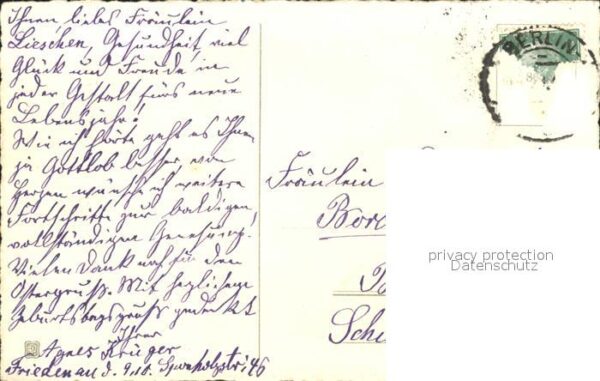 Ihnen liebes Fräulein
Lieschen, Gesundheit, viel
Glück und Freude in
jeder Gestalt fürs neue
Lebensjahr!
Wie ich hörte geht es Ihnen
ja Gottlob besser von
Herzen wünsche ich weitere
Fortschritte zur baldigen,
vollständigen Genesung.
Vielen Dank noch für den
Ostergruß. Mit herzlichem
Geburtstagsgruß gedenkt
Ihrer
Agnes Krüger
Friedenau d. 46
BERLIN
Fräulein
privacy protection
Datenschutz